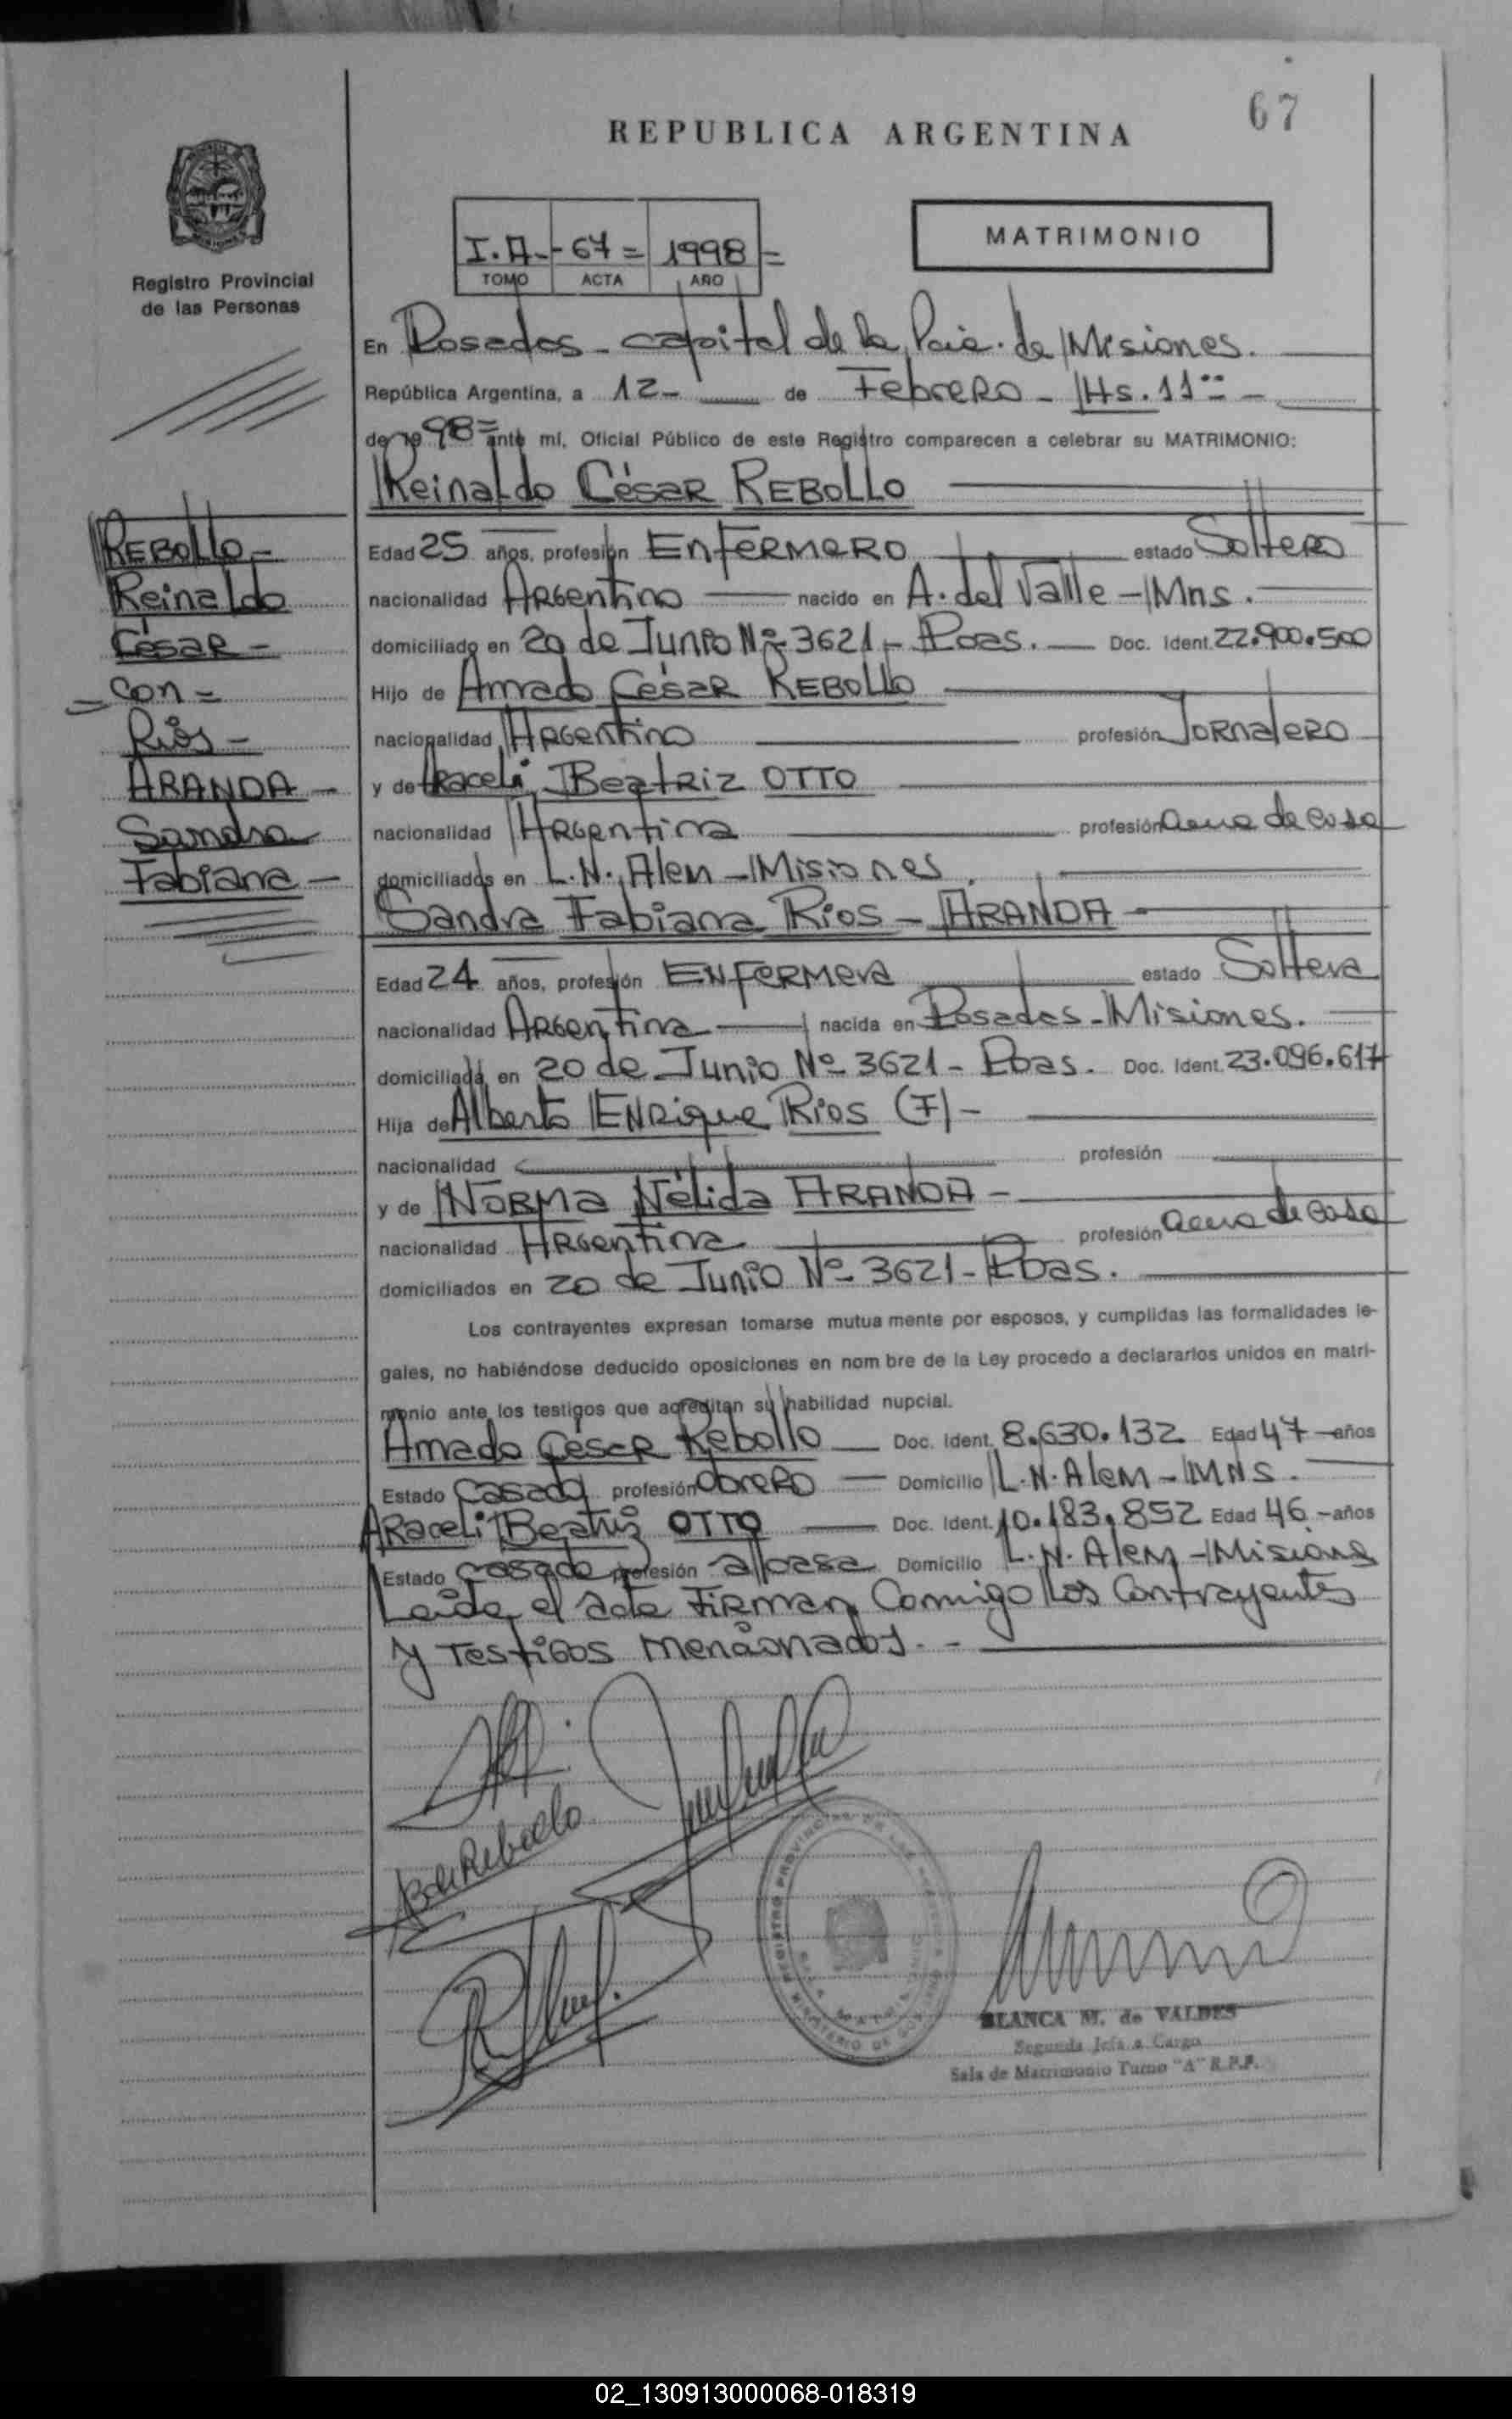 67
REPUBLICA ARGENTINA
Registro Provincial
de las Personas
I.A.- -67= 1998=
TOMO ACTA AÑO
MATRIMONIO
En Posadas - capital de la Pcia. de Misiones.
República Argentina, a 12- de Febrero - Hs. 11
de 19 98= ante mí, Oficial Público de este Registro comparecen a celebrar su MATRIMONIO:
Reinaldo César REBOLLO
REBOLLO-
Reinaldo
César -
= con =
Ríos -
ARANDA -
Sandra
Fabiana -
Edad 25 años, profesión ENFERMERO estado Soltero
nacionalidad Argentino nacido en A. del Valle - Mns.
domiciliado en 20 de Junio Nº 3621 - Pdas. Doc. Ident. 22.900.500
Hijo de Amado César REBOLLO
nacionalidad Argentino profesión Jornalero
y de Araceli Beatriz OTTO
nacionalidad Argentina profesión ama de casa
domiciliados en L.N. Alem - Misiones.
Sandra Fabiana Rios - ARANDA -
Edad 24 años, profesión ENFERMERA estado Soltera
nacionalidad Argentina nacida en Posadas - Misiones.
domiciliada en 20 de Junio Nº 3621 - Pdas. Doc. Ident. 23.096.617
Hija de Alberto ENRIQUE Rios (F) -
nacionalidad profesión
y de NORMA Nélida ARANDA -
nacionalidad Argentina profesión ama de casa
domiciliados en 20 de Junio Nº 3621 - Pdas.
Los contrayentes expresan tomarse mutua mente por esposos, y cumplidas las formalidades le-
gales, no habiéndose deducido oposiciones en nom bre de la Ley procedo a declararlos unidos en matri-
monio ante los testigos que acreditan su habilidad nupcial.
Amado César Rebollo Doc. Ident. 8.630.132 Edad 47 años
Estado Casado profesión Obrero Domicilio L.N. Alem - MNS.
Araceli Beatriz OTTO Doc. Ident. 10.183.852 Edad 46 - años
Estado casada profesión a/casa Domicilio L.N. Alem - Misiones
Leída el acta Firman Conmigo los Contrayentes
y Testigos mencionados. -
REGISTRO PROVINCIAL DE LAS PERSONAS
MINISTERIO DE GOBIERNO
BLANCA M. de VALDES
Segunda Jefa a Cargo
Sala de Matrimonio Turno "A" R.P.P.
02_130913000068-018319